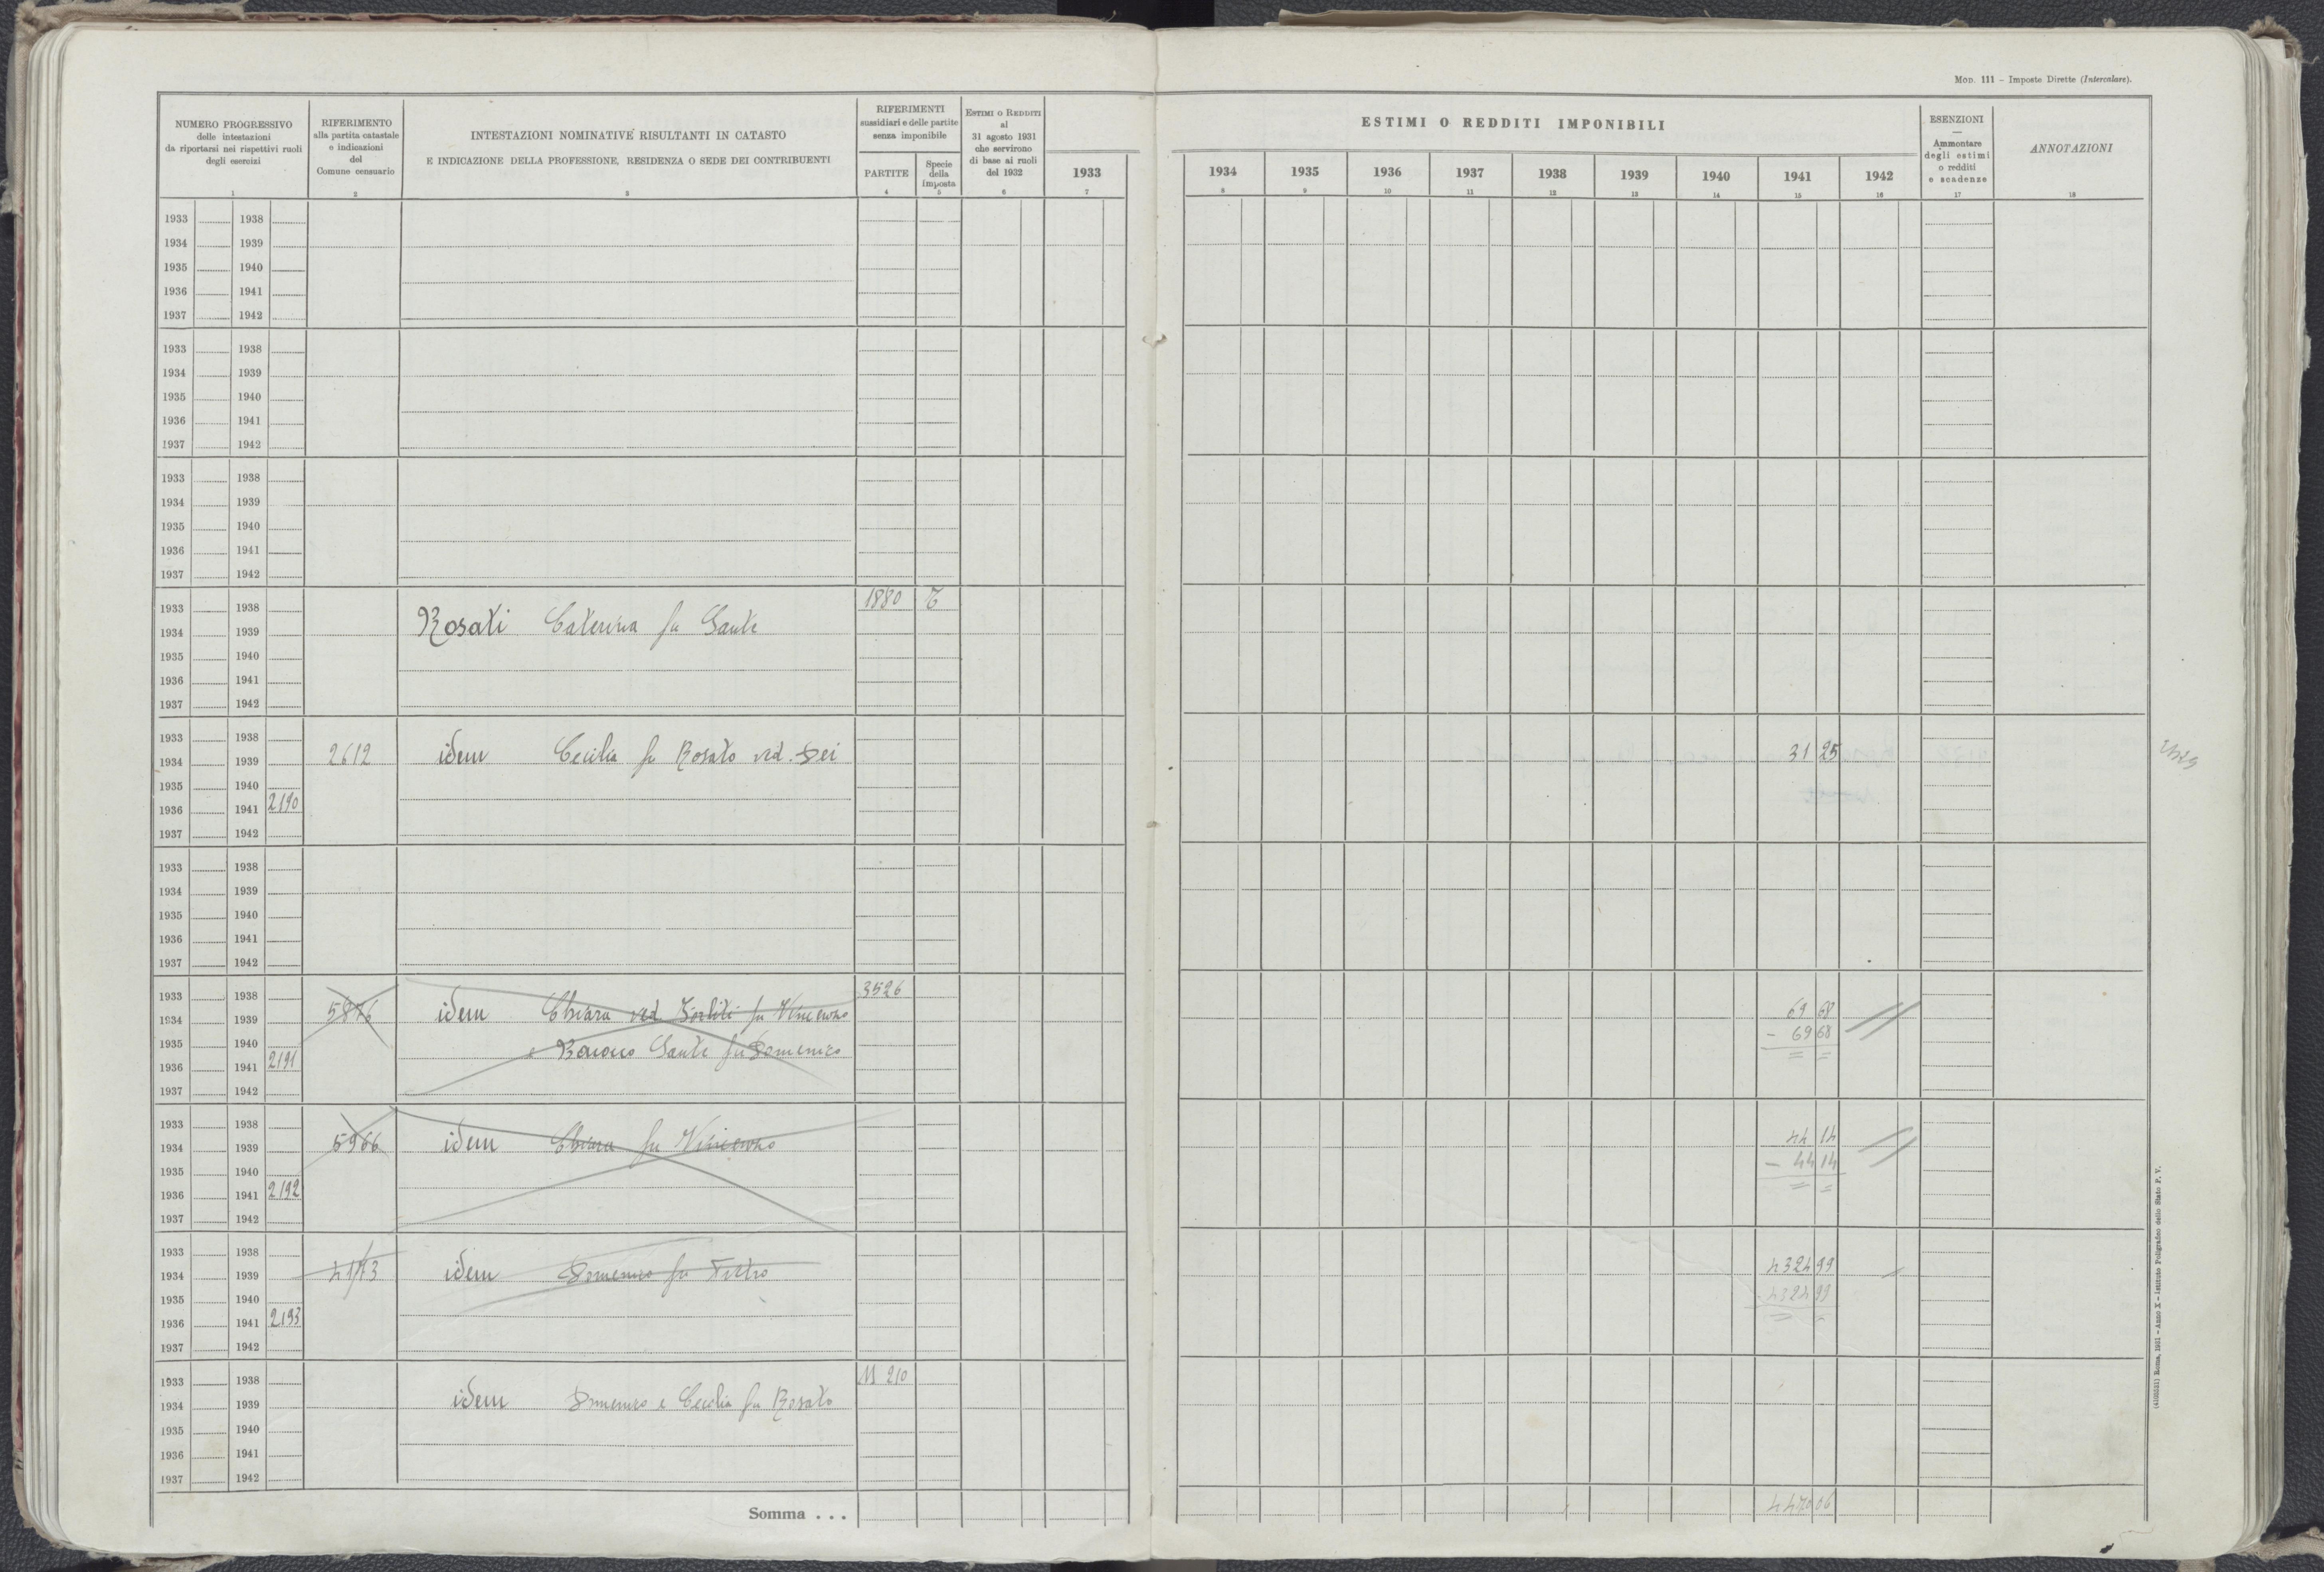 MOD. 111 – Imposte Dirette (Intercalare).
NUMERO PROGRESSIVO
delle intestazioni
da riportarsi nei rispettivi ruoli
degli esercizi
1
RIFERIMENTO
alla partita catastale
e indicazioni
del
Comune censuario
2
INTESTAZIONI NOMINATIVE RISULTANTI IN CATASTO
E INDICAZIONE DELLA PROFESSIONE, RESIDENZA O SEDE DEI CONTRIBUENTI
3
RIFERIMENTI
sussidiari e delle partite
senza imponibile
PARTITE
4
Specie
della
imposta
5
ESTIMI O REDDITI
al
31 agosto 1931
che servirono
di base ai ruoli
del 1932
6
1933
7
ESTIMI O REDDITI IMPONIBILI
1934 1935 1936 1937 1938 1939 1940 1941 1942
8 9 10 11 12 13 14 15 16
ESENZIONI
—
Ammontare
degli estimi
o redditi
e scadenze
17
ANNOTAZIONI
18
1933 1938
1934 1939
1935 1940
1936 1941
1937 1942
1933 1938
1934 1939
1935 1940
1936 1941
1937 1942
1933 1938
1934 1939
1935 1940
1936 1941
1937 1942
1933 1938 1880 T
1934 1939 Rosati Caterina fu Sante
1935 1940
1936 1941
1937 1942
1933 1938
1934 1939 2612 idem Cecilia fu Rosato ved. Dei 31 25
1935 1940
1936 1941 2190
1937 1942
1933 1938
1934 1939
1935 1940
1936 1941
1937 1942
1933 1938 3526
1934 1939 5876 idem Chiara ved fu Vincenzo 69 68
1935 1940 e Sante fu Domenico – 69 68
1936 1941 2191 = =
1937 1942
1933 1938
1934 1939 5966 idem Chiara fu Vincenzo 44 14
1935 1940 – 44 14
1936 1941 2192 = =
1937 1942
1933 1938
1934 1939 4173 idem Domenico fu Pietro 4324 99
1935 1940 – 4324 99
1936 1941 2193 = =
1937 1942
1933 1938 11 210
1934 1939 idem Domenico e Cecilia fu Rosato
1935 1940
1936 1941
1937 1942
Somma . . . 4470 06
(4103531) Roma, 1931 – Anno X – Istituto Poligrafico dello Stato P. V.